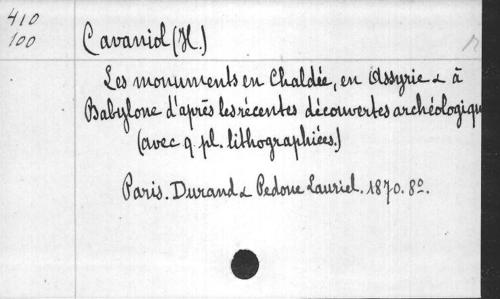 410
100
Cavaniol (H.)
Les monuments en Chaldée, en Assyrie & à
Babylone d'après les récentes découvertes archéologiqu
(avec 9 pl. lithographiées.)
Paris. Durand & Pedone Lauriel. 1870. 8º.